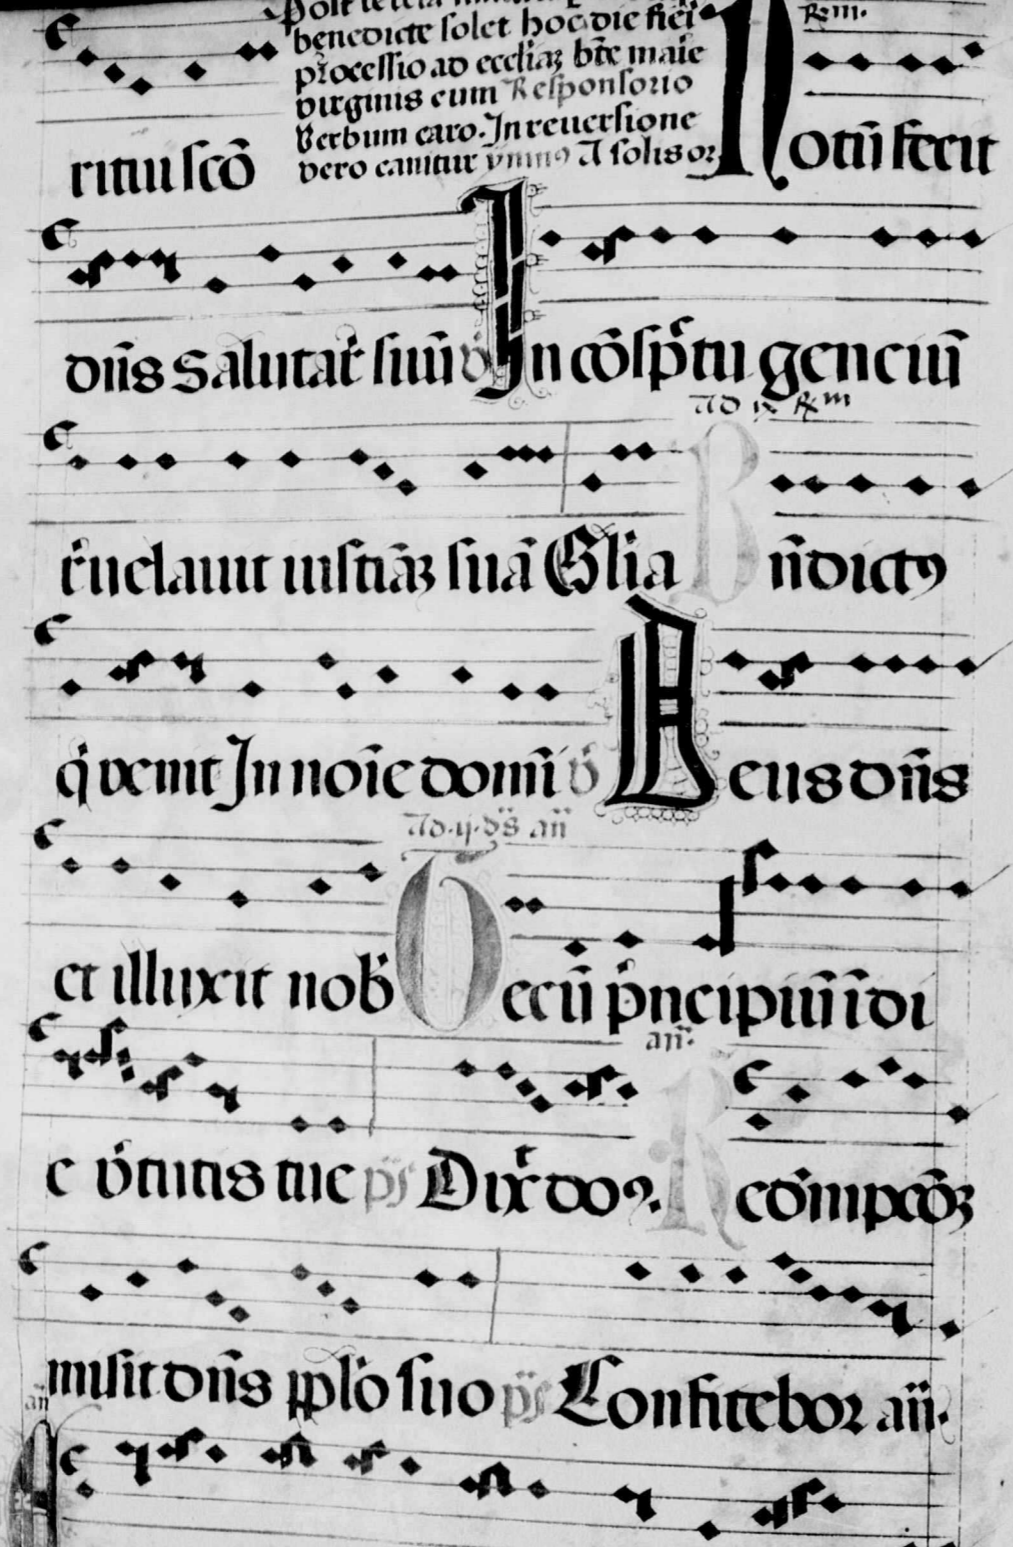 benedicte solet hodie fieri
p̄cessio ad eccliaꝫ bte marie
virginis cum Responsorio
Verbum caro. In reuersione
vero canitur ymnꝰ A solis or
ritui scō
℞m.
Notū fecit
dn̄s salutar̄ suū ℣ In cōsp̄tu genciū
ad ix ℞m
r̄uelauit iusticiāꝫ suā Gl̄ia Bn̄dictꝰ
q̄ venit In noīe domī ℣ Deus dn̄s
Ad .ij. v̄s an̄
et illuxit nob̄ Tecū p̄ncipiū ī di
an̄.
e v̄tutis tue p̄s Dix̄ do9. Redēmpcōꝫ
misit dn̄s pplō suo p̄s Confitebor an̄.
an̄